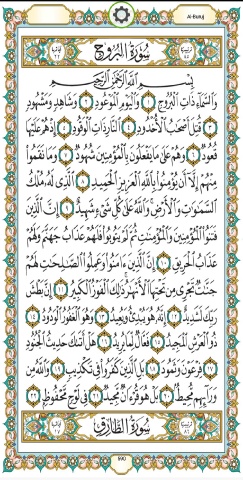 Al-Buruj
سُورَةُ البُرُوجِ
بِسْمِ اللَّهِ الرَّحْمَٰنِ الرَّحِيمِ
وَالسَّمَاءِ ذَاتِ الْبُرُوجِ ١ وَالْيَوْمِ الْمَوْعُودِ ٢ وَشَاهِدٍ وَمَشْهُودٍ
٣ قُتِلَ أَصْحَابُ الْأُخْدُودِ ٤ النَّارِ ذَاتِ الْوَقُودِ ٥ إِذْ هُمْ عَلَيْهَا
قُعُودٌ ٦ وَهُمْ عَلَىٰ مَا يَفْعَلُونَ بِالْمُؤْمِنِينَ شُهُودٌ ٧ وَمَا نَقَمُوا
مِنْهُمْ إِلَّا أَن يُؤْمِنُوا بِاللَّهِ الْعَزِيزِ الْحَمِيدِ ٨ الَّذِي لَهُ مُلْكُ
السَّمَاوَاتِ وَالْأَرْضِ وَاللَّهُ عَلَىٰ كُلِّ شَيْءٍ شَهِيدٌ ٩ إِنَّ الَّذِينَ
فَتَنُوا الْمُؤْمِنِينَ وَالْمُؤْمِنَاتِ ثُمَّ لَمْ يَتُوبُوا فَلَهُمْ عَذَابُ جَهَنَّمَ وَلَهُمْ
عَذَابُ الْحَرِيقِ ١٠ إِنَّ الَّذِينَ ءَامَنُوا وَعَمِلُوا الصَّالِحَاتِ لَهُمْ
جَنَّاتٌ تَجْرِي مِن تَحْتِهَا الْأَنْهَارُ ذَٰلِكَ الْفَوْزُ الْكَبِيرُ ١١ إِنَّ بَطْشَ
رَبِّكَ لَشَدِيدٌ ١٢ إِنَّهُ هُوَ يُبْدِئُ وَيُعِيدُ ١٣ وَهُوَ الْغَفُورُ الْوَدُودُ ١٤
ذُو الْعَرْشِ الْمَجِيدُ ١٥ فَعَّالٌ لِّمَا يُرِيدُ ١٦ هَلْ أَتَاكَ حَدِيثُ الْجُنُودِ
١٧ فِرْعَوْنَ وَثَمُودَ ١٨ بَلِ الَّذِينَ كَفَرُوا فِي تَكْذِيبٍ ١٩ وَاللَّهُ مِن
وَرَائِهِم مُّحِيطٌ ٢٠ بَلْ هُوَ قُرْءَانٌ مَّجِيدٌ ٢١ فِي لَوْحٍ مَّحْفُوظٍ ٢٢
سُورَةُ الطَّارِقِ